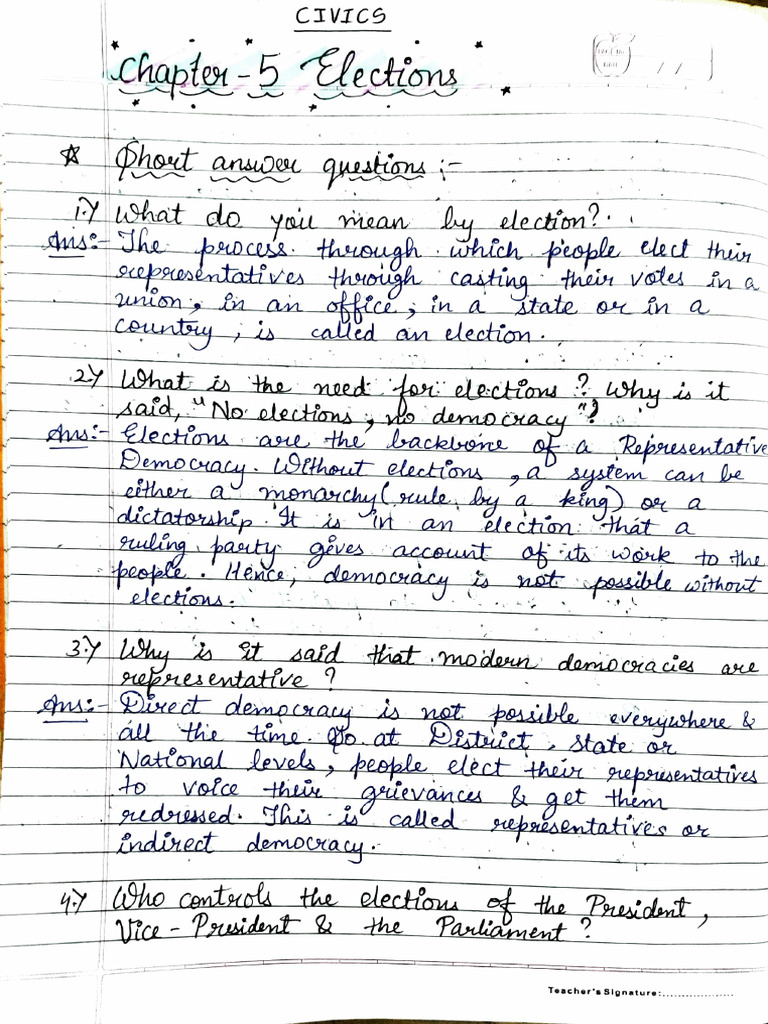 CIVICS
Chapter-5 Elections
/ /
Short answer questions :-
1.) What do you mean by election?
Ans:- The process through which people elect their
representatives through casting their votes in a
union, in an office, in a state or in a
country, is called an election.
2.) What is the need for elections? Why is it
said, "No elections, no democracy"?
Ans:- Elections are the backbone of a Representative
Democracy. Without elections, a system can be
either a monarchy (rule by a king) or a
dictatorship. It is in an election that a
ruling party gives account of its work to the
people. Hence, democracy is not possible without
elections.
3.) Why is it said that modern democracies are
representative?
Ans:- Direct democracy is not possible everywhere &
all the time. So at District, state or
National levels, people elect their representatives
to voice their grievances & get them
redressed. This is called representatives or
indirect democracy.
4.) Who controls the elections of the President,
Vice-President & the Parliament?
Teacher's Signature:....................